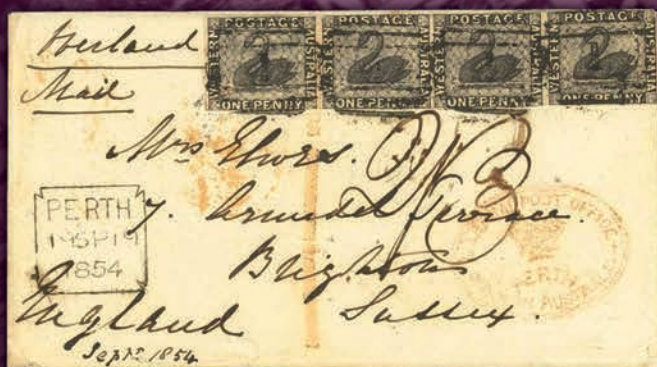 Overland
Mail
POSTAGE
WESTERN
AUSTRALIA
ONE PENNY
POSTAGE
WESTERN
AUSTRALIA
ONE PENNY
POSTAGE
WESTERN
AUSTRALIA
ONE PENNY
POSTAGE
WESTERN
AUSTRALIA
ONE PENNY
Mrs Elwes.
7. Arundel Terrace.
Brighton
Sussex.
England
Sept 1854
PERTH
SP19
1854
POST OFFICE
PERTH